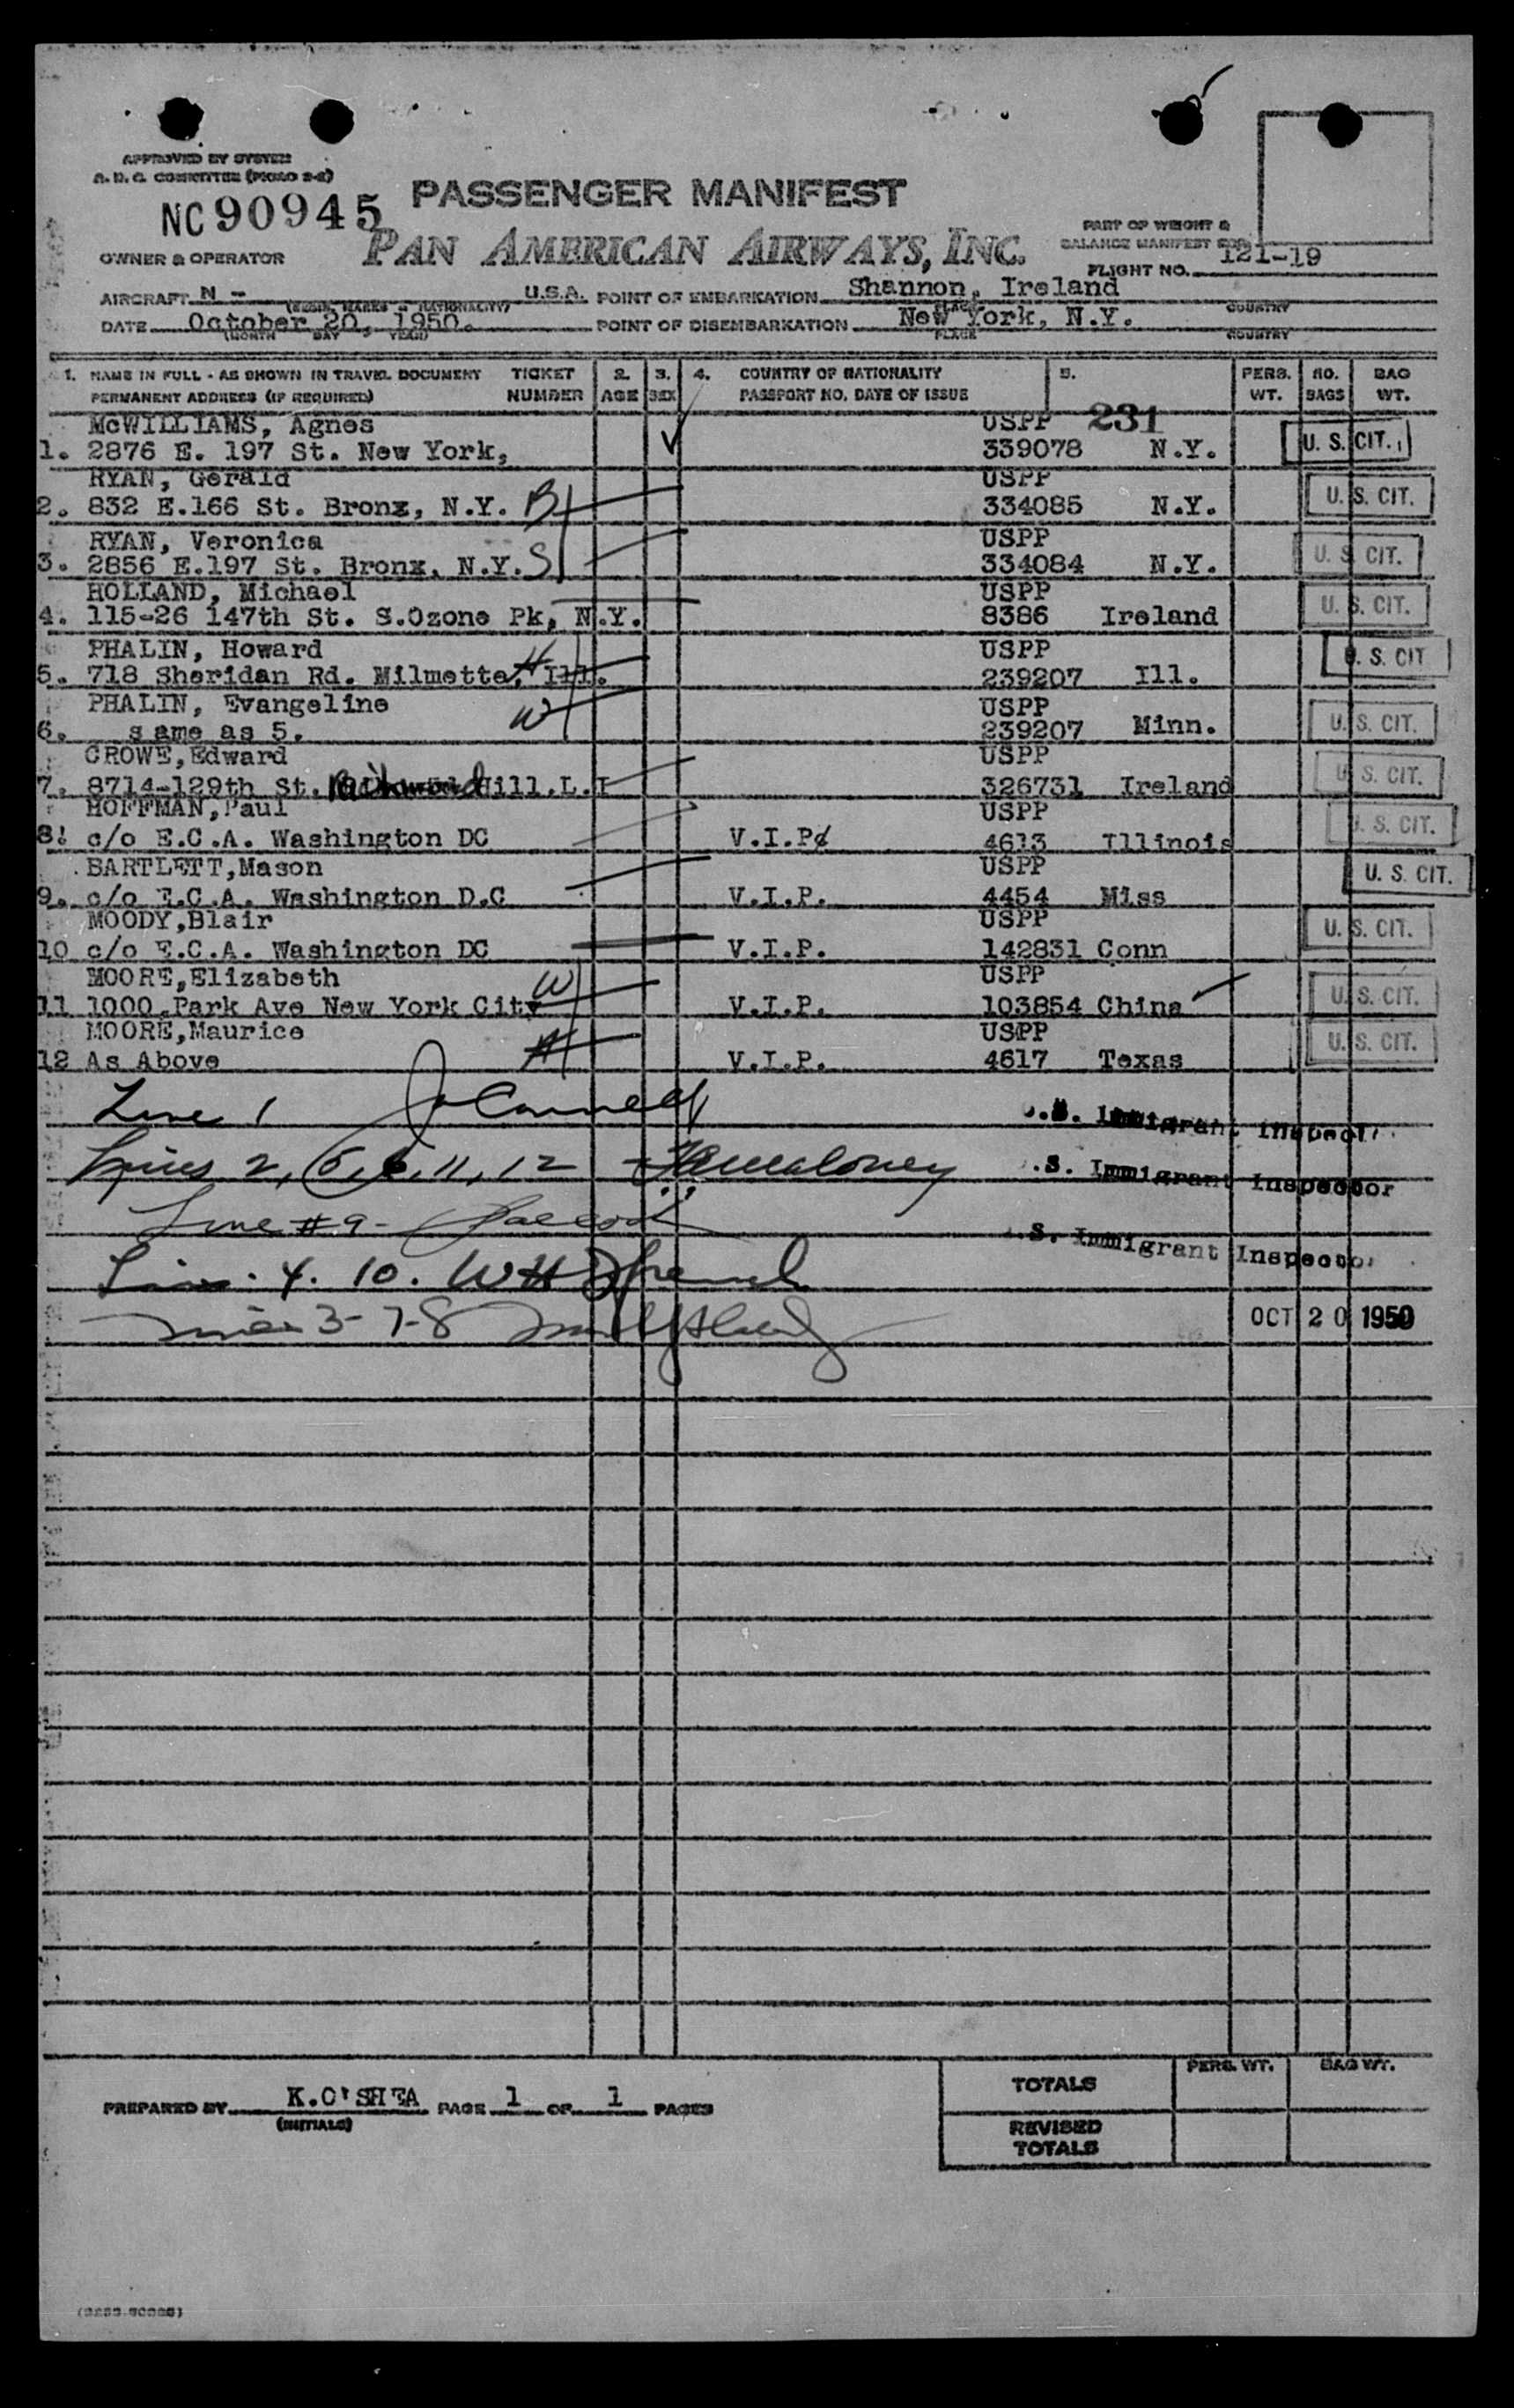 APPROVED BY SYSTEM
NC 90945
PASSENGER MANIFEST
PART OF WEIGHT &
BALANCE MANIFEST FOR
OWNER & OPERATOR PAN AMERICAN AIRWAYS, INC.
FLIGHT NO. 121-19
AIRCRAFT N - U.S.A. POINT OF EMBARKATION Shannon, Ireland
PLACE COUNTRY
DATE October 20, 1950. POINT OF DISEMBARKATION New York, N.Y.
(MONTH DAY YEAR) PLACE COUNTRY
1. NAME IN FULL - AS SHOWN IN TRAVEL DOCUMENT TICKET 2. 3. 4. COUNTRY OF NATIONALITY 5. PERS. NO. BAG
PERMANENT ADDRESS (IF REQUIRED) NUMBER AGE SEX PASSPORT NO. DATE OF ISSUE WT. BAGS WT.
McWILLIAMS, Agnes USPP 231
1. 2876 E. 197 St. New York, 339078 N.Y. U. S. CIT.
RYAN, Gerald USPP
2. 832 E.166 St. Bronx, N.Y. B 334085 N.Y. U. S. CIT.
RYAN, Veronica USPP
3. 2856 E.197 St. Bronx, N.Y. S 334084 N.Y. U. S. CIT.
HOLLAND, Michael USPP
4. 115-26 147th St. S.Ozone Pk, N.Y. 8386 Ireland U. S. CIT.
PHALIN, Howard USPP
5. 718 Sheridan Rd. Milmette, Ill. H 239207 Ill. U. S. CIT
PHALIN, Evangeline USPP
6. same as 5. W 239207 Minn. U. S. CIT.
CROWE,Edward USPP
7. 8714-129th St. Richmond Hill.L.I 326731 Ireland U. S. CIT.
HOFFMAN,Paul USPP
8. c/o E.C.A. Washington DC V.I.P. 4613 Illinois U. S. CIT.
BARTLETT,Mason USPP
9. c/o E.C.A. Washington D.C V.I.P. 4454 Miss U. S. CIT.
MOODY,Blair USPP
10 c/o E.C.A. Washington DC V.I.P. 142831 Conn U. S. CIT.
MOORE,Elizabeth USPP
11 1000 Park Ave New York City W V.I.P. 103854 China U. S. CIT.
MOORE,Maurice USPP
12 As Above H V.I.P. 4617 Texas U. S. CIT.
Line 1 .S. Immigrant Inspect
Lines 2, 5, 6, 11, 12 .S. Immigrant Inspector
Line #9- .S. Immigrant Inspector
4. 10.
3-7-8 OCT 20 1950
TOTALS PERS. WT. BAG WT.
PREPARED BY K.O'SHEA PAGE 1 OF 1 PAGES
(INITIALS)
REVISED
TOTALS